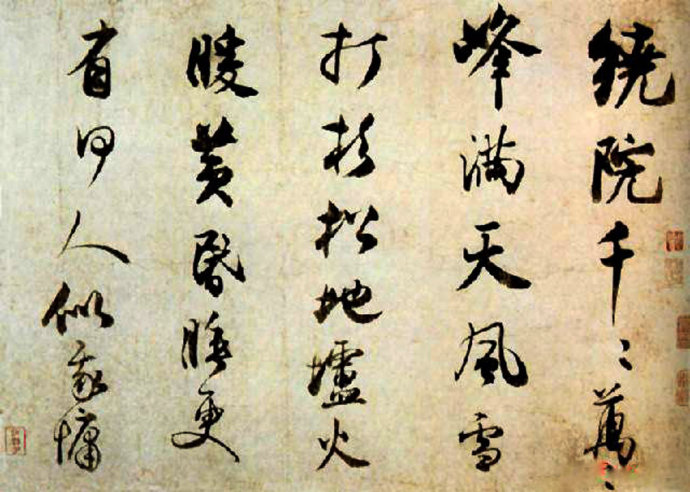 繞院千〻萬〻
峰滿天風雪
打杉松地壚火
暖黃昬睡更
有何人似我慵